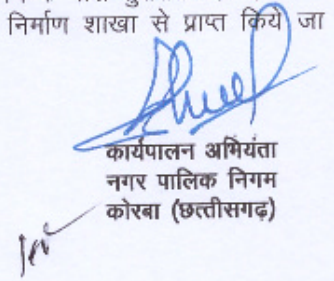 निर्माण शाखा से प्राप्त किये जा
कार्यपालन अभियंता
नगर पालिक निगम
कोरबा (छत्तीसगढ़)